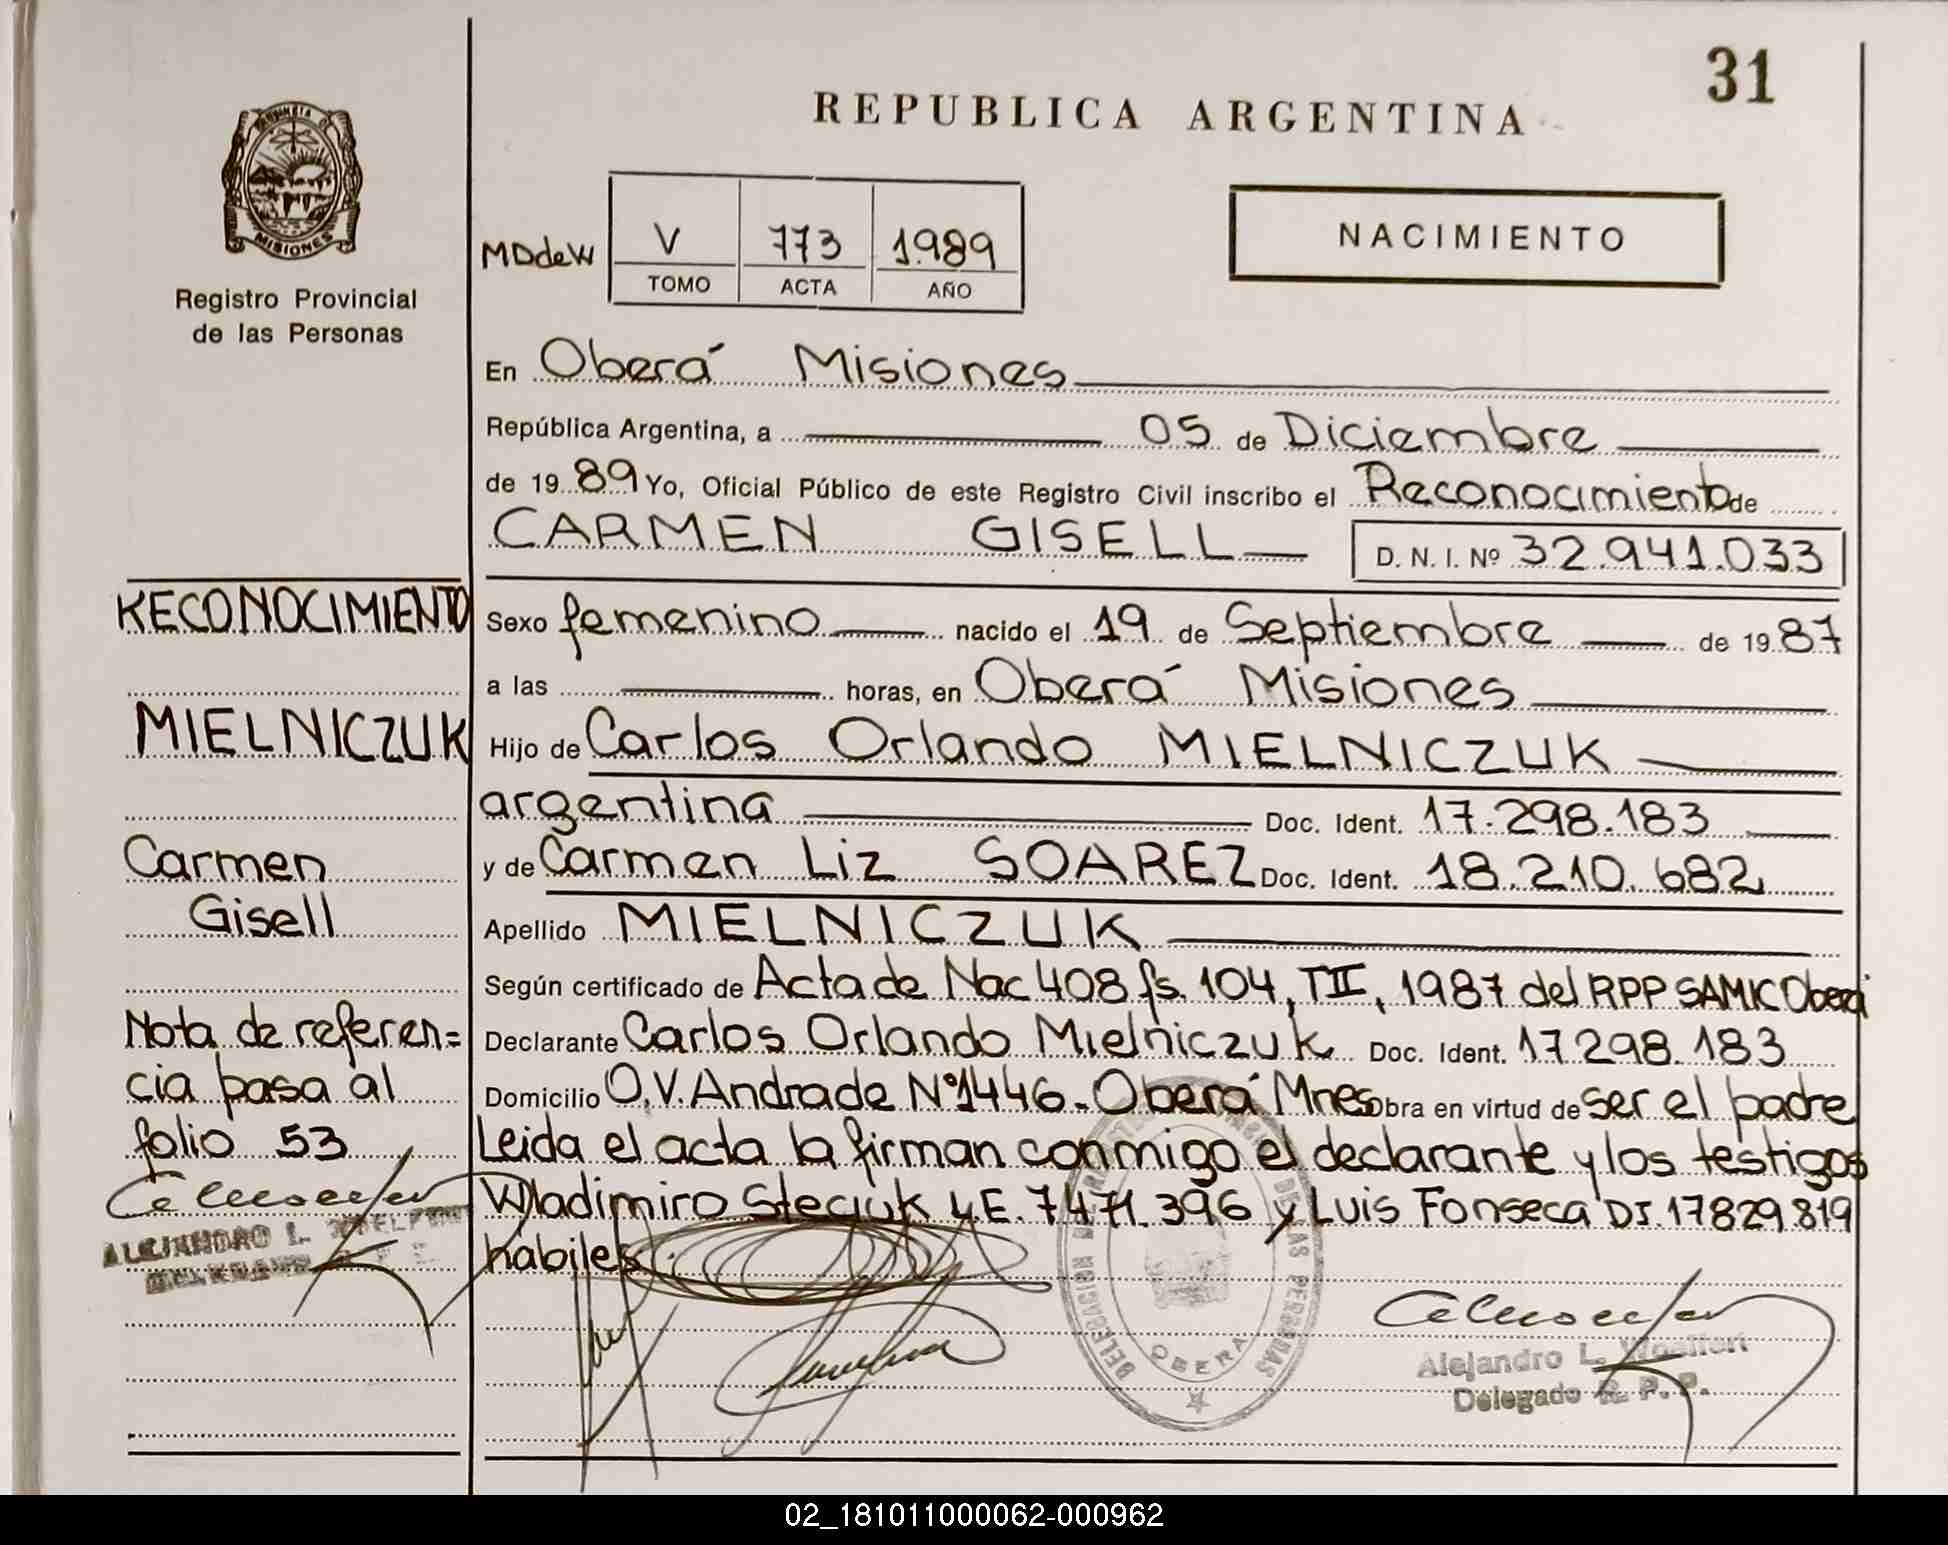 31
REPUBLICA ARGENTINA
PROVINCIA D
MISIONES
Registro Provincial
de las Personas
MDdeW
V 773 1.989
TOMO ACTA AÑO
NACIMIENTO
En Oberá Misiones
República Argentina, a 05 de Diciembre
de 19 89 Yo, Oficial Público de este Registro Civil inscribo el Reconocimiento de
CARMEN GISELL D. N. I. Nº 32.941.033
Sexo femenino nacido el 19 de Septiembre de 19 87
a las horas, en Oberá Misiones
Hijo de Carlos Orlando MIELNICZUK
argentina Doc. Ident. 17.298.183
y de Carmen Liz SOAREZ Doc. Ident. 18.210.682
Apellido MIELNICZUK
Según certificado de Acta de Nac 408 fs. 104, TII, 1987 del RPP SAMIC Oberá
Declarante Carlos Orlando Mielniczuk Doc. Ident. 17298.183
Domicilio O.V. Andrade Nº1446. Oberá Mnes Obra en virtud de ser el padre
Leida el acta la firman conmigo el declarante y los testigos
Wladimiro Steciuk L.E. 7471.396 y Luis Fonseca DI.17829.819
hábiles.
RECONOCIMIENTO
MIELNICZUK
Carmen
Gisell
Nota de referen=
cia pasa al
folio 53
ALEJANDRO L.
DELEGACION DE LAS PERSONAS
OBERA
Alejandro L.
Delegado R. P. P.
02_181011000062-000962